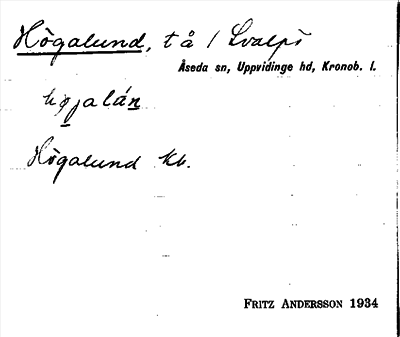 Högalund, tå / Lvalps
Åseda sn, Uppvidinge hd, Kronob. l.
højalán
Högalund kb.
FRITZ ANDERSSON 1934